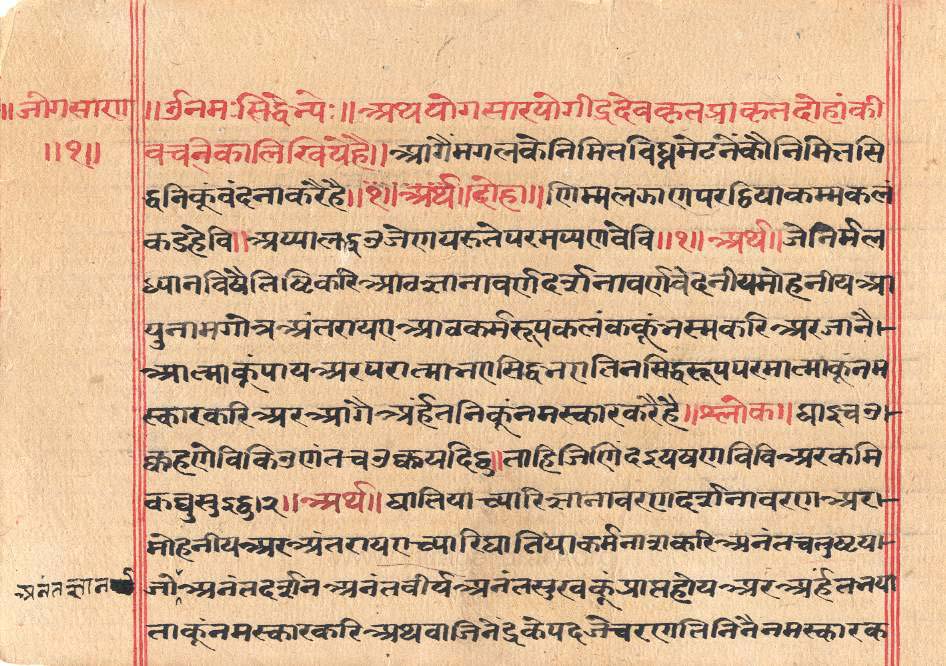 ॥जोगसारण
॥१॥
॥र्उनमःसिद्धेभ्यः॥अथयोगसारयोगीद्रदेवकृतप्राकृतदोहांकी
वचनिकालिखियेहै॥आगैंमगलकेनिमितविघ्नमेटनेंकौनिमितसि
द्धनिकूंवंदनाकरैंहै॥१॥अर्थ॥दोहा॥णिम्मलझाणपरट्ठियाकम्मकलं
कडहेवि॥अप्पालद्धउजेणपरुतेपरमप्पणवेवि॥१॥अर्थ॥जेनिर्मल
ध्यानविषैतिष्टिकरिआवज्ञानावर्णदर्शनावर्णवेदनीयमोहनीयआ
युनामगोत्रअंतरायएआवकर्मरूपकलंककूंभस्मकरिअरजानै
आत्माकूंपायअरपरात्माभएसिद्धभएतिनसिद्धरूपपरमात्माकूंनम
स्कारकरिअरआगैअर्हतनिकूंनमस्कारकरैहै॥श्लोक॥घाइचउ
क्कहणेविकिउणंतचउक्कयदिट्ठु॥ताहिजिणिंदइपयणविविअरकमि
कव्वुसुइट्ठु।२॥अर्थ॥घातियाच्यारिज्ञानावरणदर्शनावरणअर
मोहनीयअरअंतरायएच्यारिघातियाकर्मनाशकरिअनंतचतुष्टया
अनंतज्ञान
जोअनंतदर्शनअनंतवीर्यअनंतसुखकूंप्राप्तहोयअरअर्हतभया
ताकूंनमस्कारकरिअथवाजिनेंद्रकेपदजेचरणतिनिनैनमस्कारक